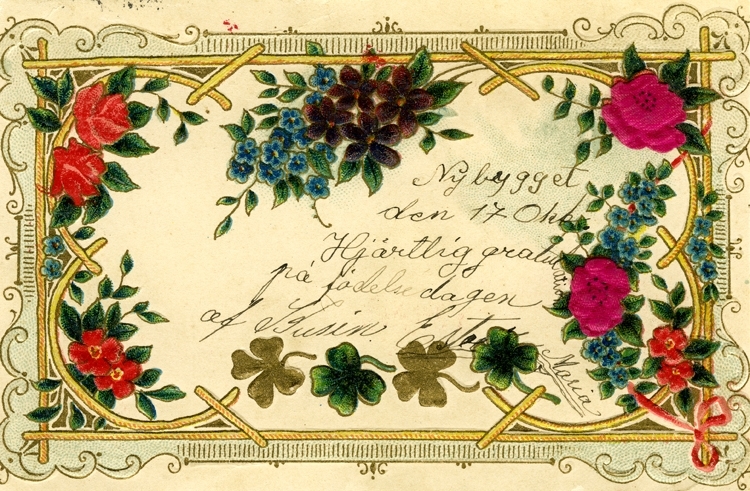 Nybygget
den 17 Okt.
Hjärtlig gratu
på födelsedagen
af Kusin. Ester
Maria